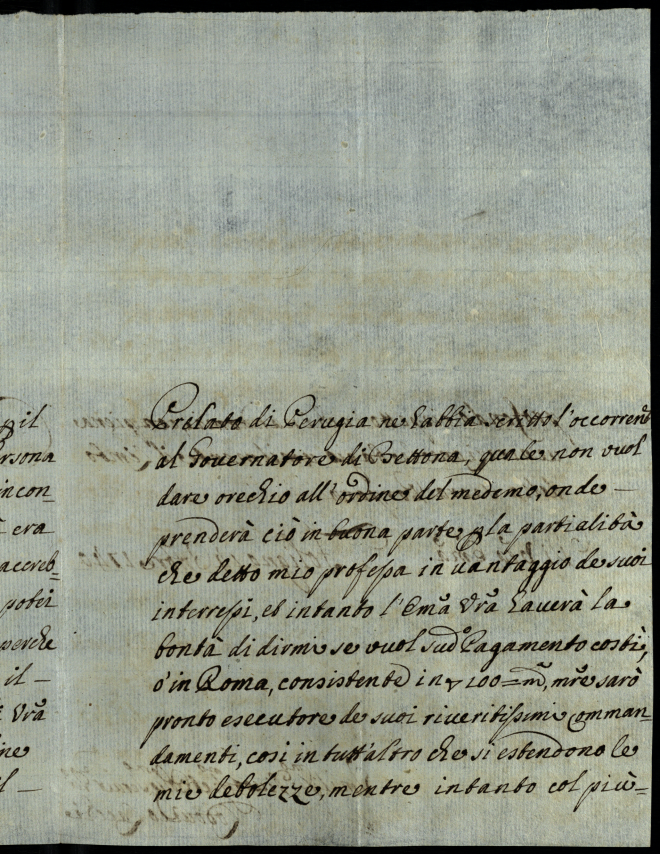 il
rsona
incon=
era
accreb=
potei
perche
il —
Vrã
ne
l —
Prelato di Perugia ne habbia scritto l'occorrente
al Governatore di Bettona, quale non vuol
dare orechio all'ordine del medemo, onde —
prenderà ciò in buona parte p la partialità
che detto mio professa in vantaggio de suoi
interressi, et intanto l'Emã Vrã haverà la
bontà di dirmi se vuol sudº Pagamento costì,
ò in Roma, consistente in 100=mᵗᵃ, mr̃e sarò
pronto esecutore de suoi riveritissimi comman=
damenti, così in tutt'altro che si estendono le
mie debolezze, mentre intanto col più=